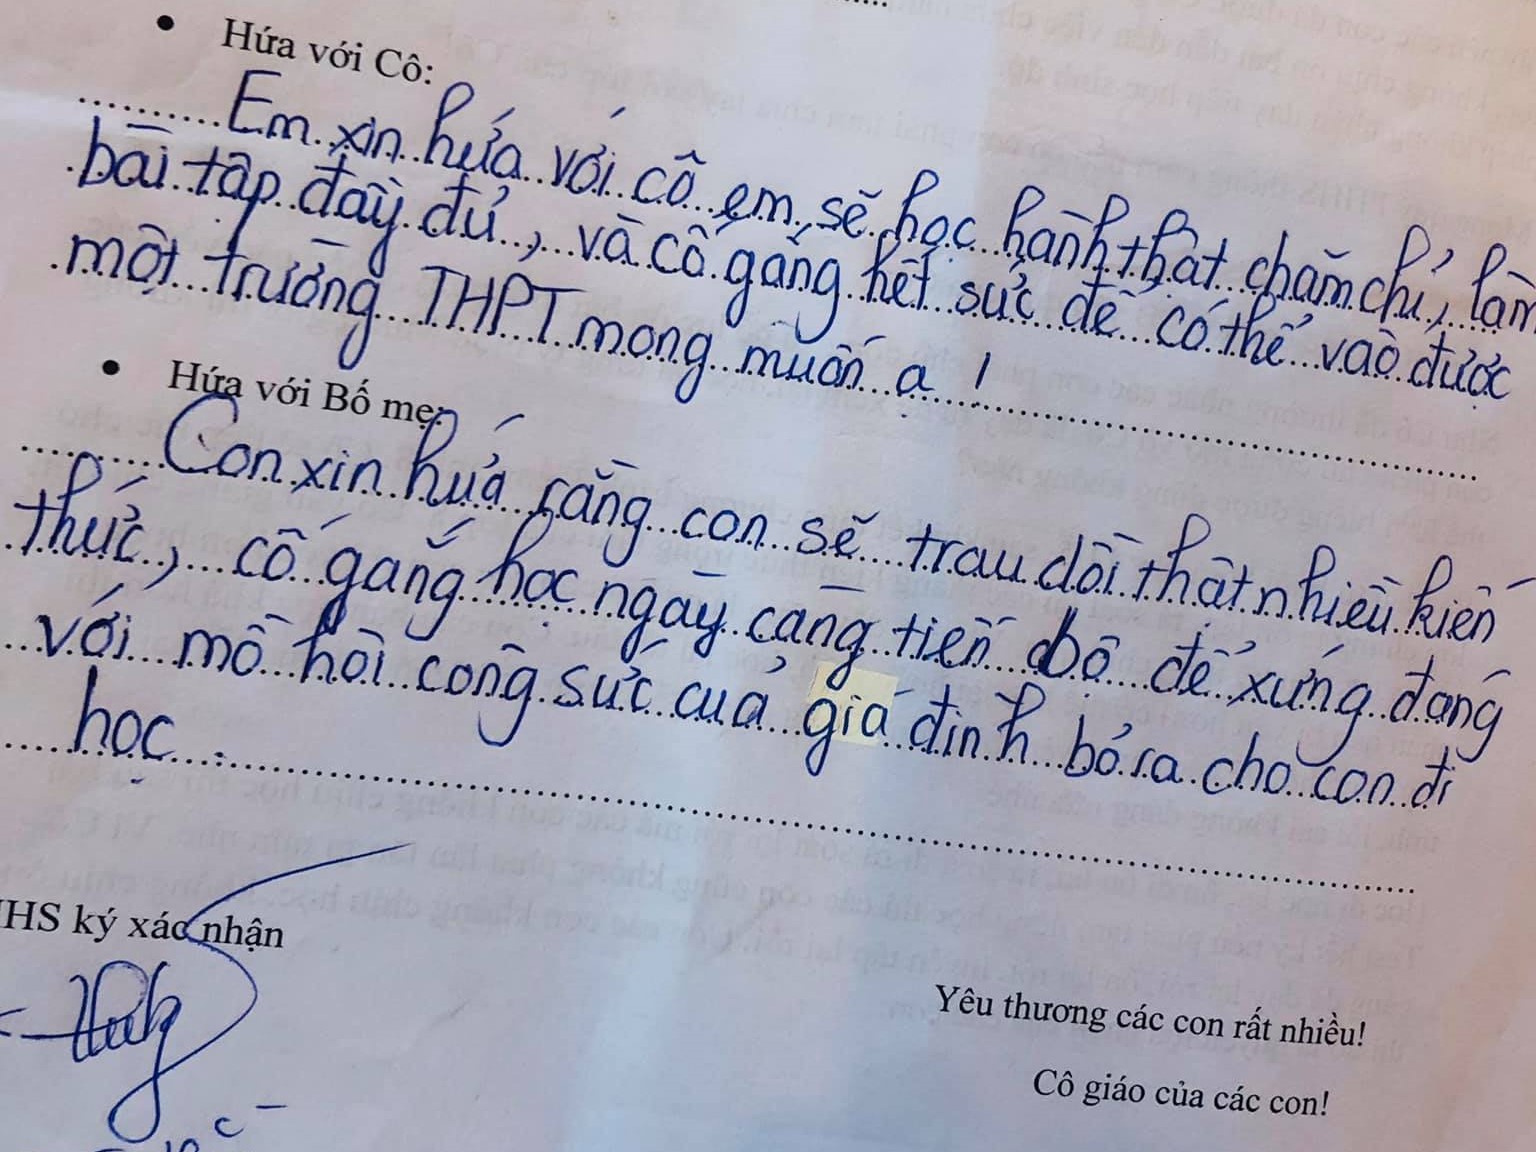 • Hứa với Cô:
Em xin hứa với cô em sẽ học hành thật chăm chỉ, làm
bài tập đầy đủ, và cố gắng hết sức để có thể vào được
một trường THPT mong muốn ạ!
• Hứa với Bố mẹ:
Con xin hứa rằng con sẽ trau dồi thật nhiều kiến
thức, cố gắng học ngày càng tiến bộ để xứng đáng
với mồ hôi công sức của giá đình bỏ ra cho con đi
học.
HS ký xác nhận
Yêu thương các con rất nhiều!
Cô giáo của các con!